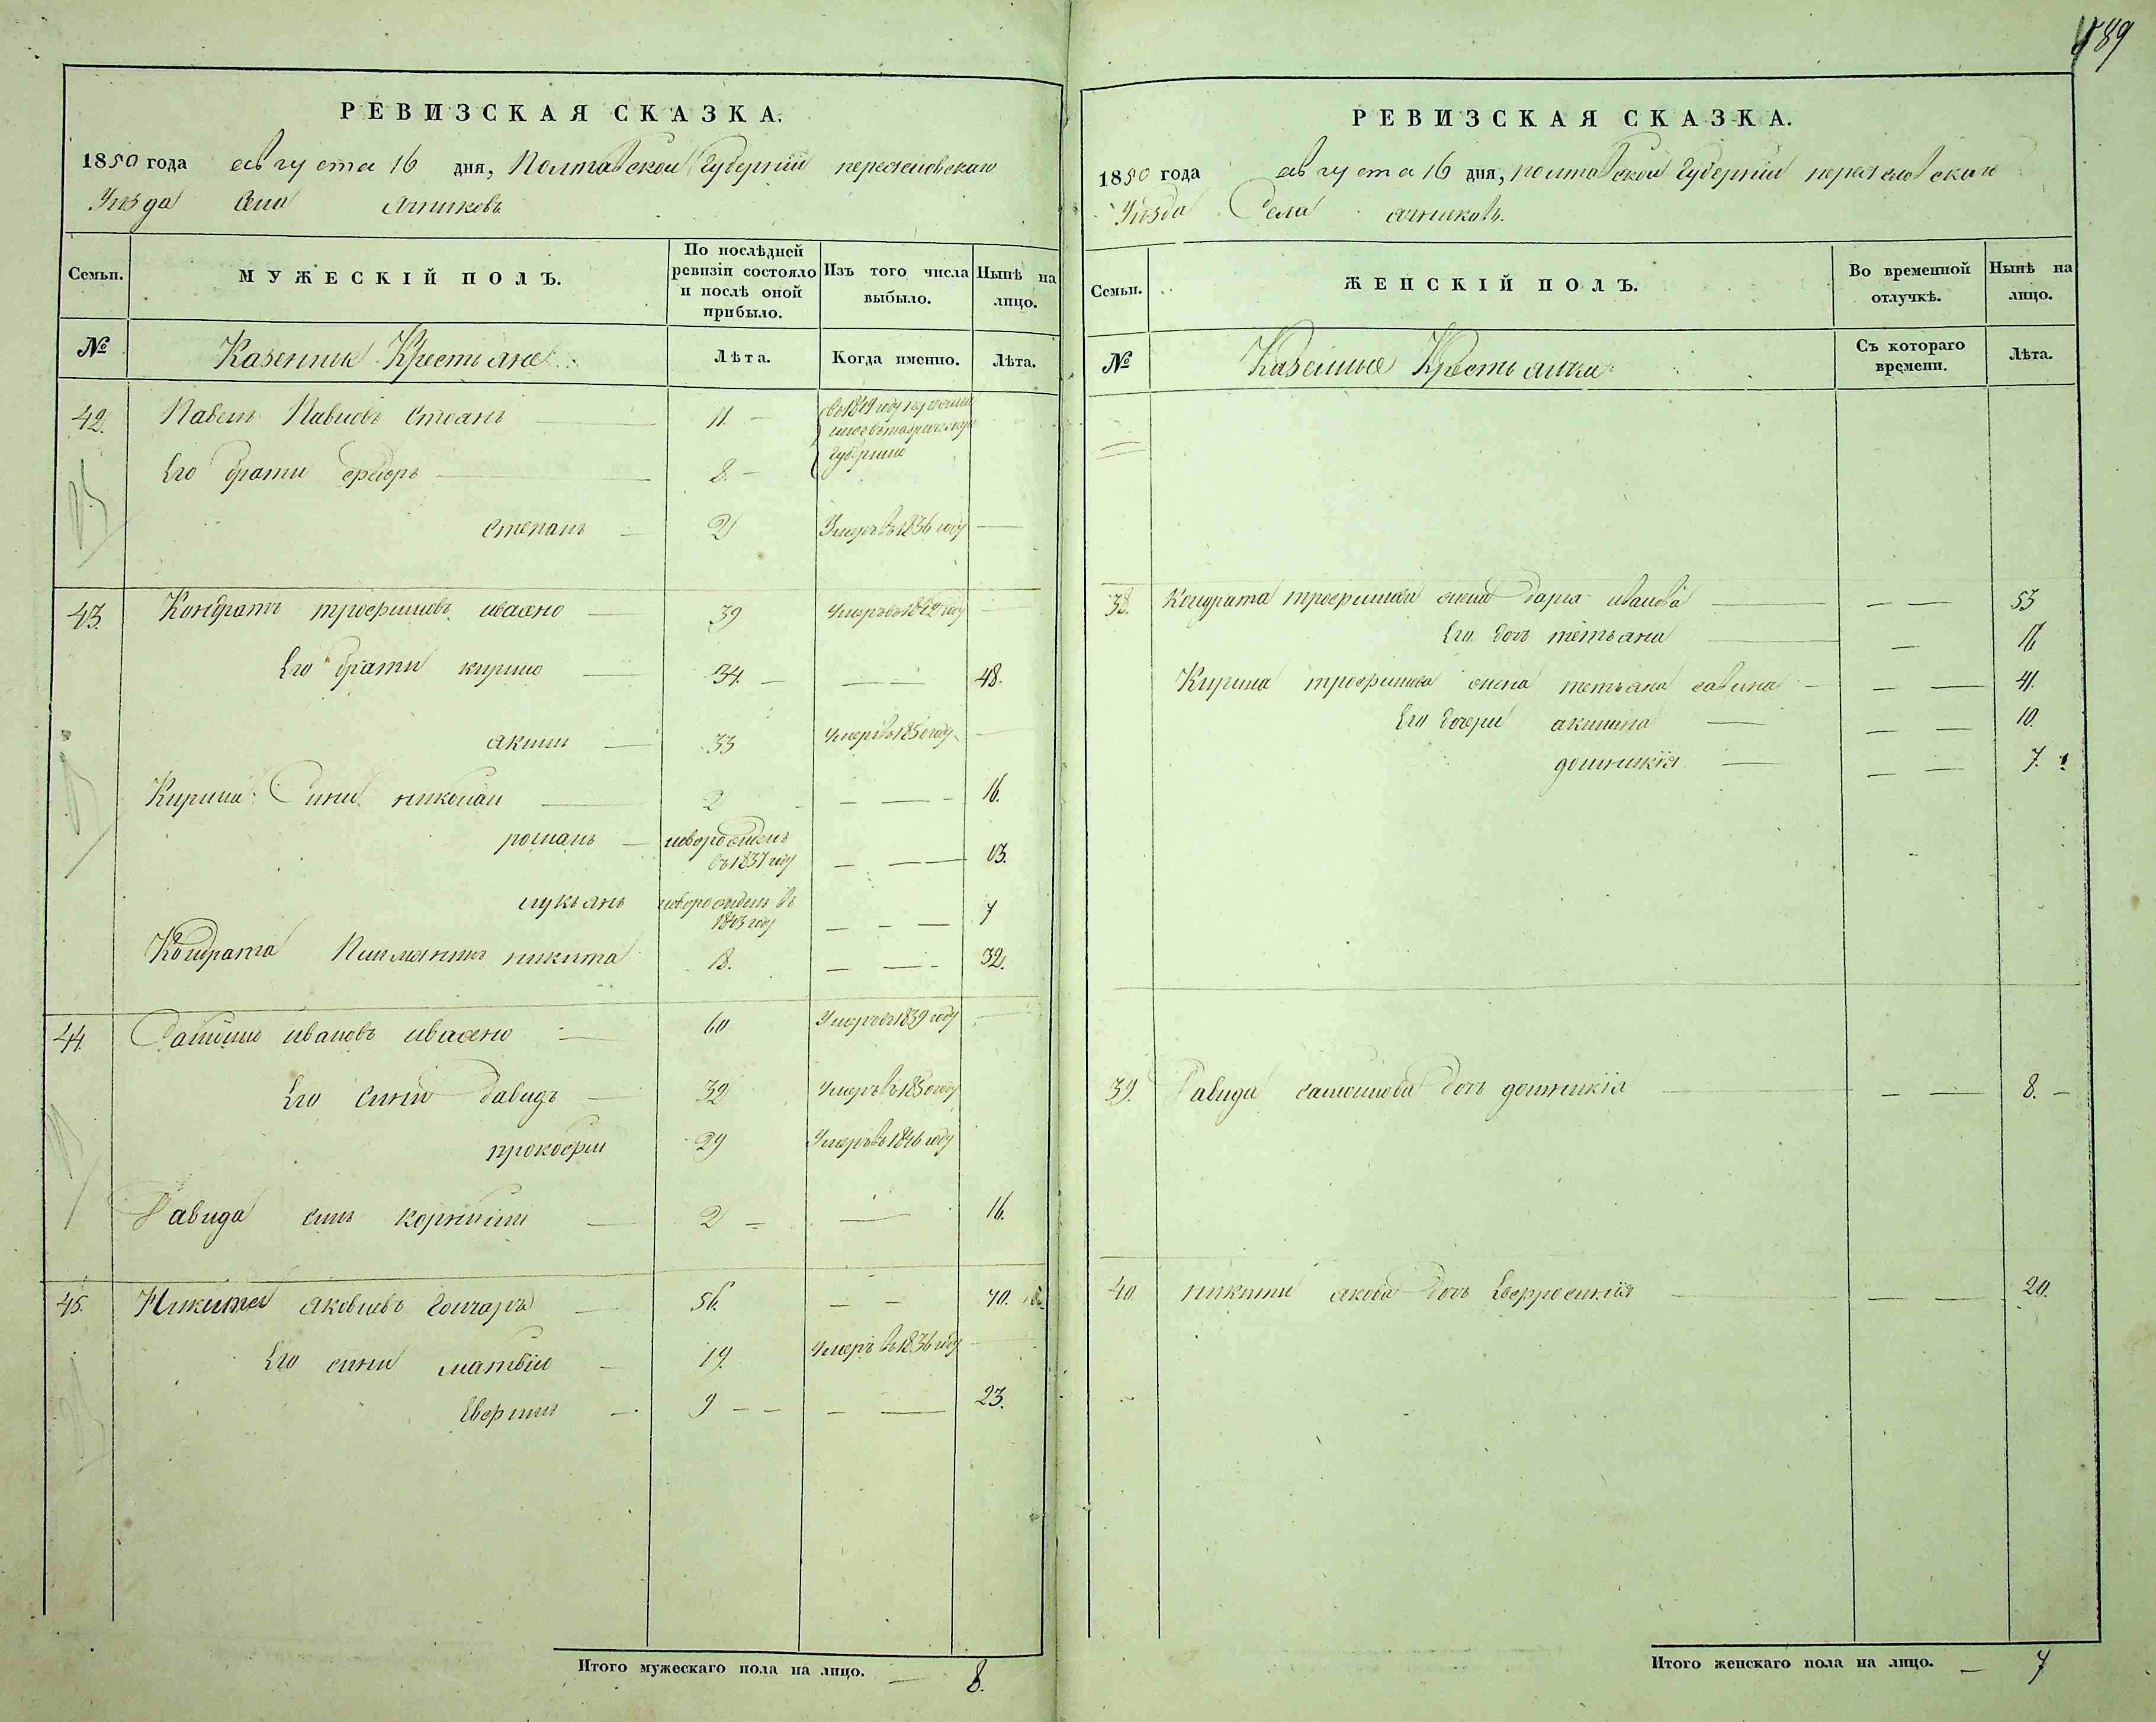 489
РЕВИЗСКАЯ СКАЗКА.
1850 года августа 16 дня, Полтавской Губернии переяславскаго
Уезда Села
МУЖЕСКІЙ ПОЛЪ.
Семьи.
По послѣдней ревизіи состояло и послѣ оной прибыло.
Изъ того числа выбыло.
Нынѣ на лицо.
№
Казенные Крестьяне
Лѣта.
Когда именно.
Лѣта.
42. Павелъ Павловъ 11.
Въ 1849 году
губернию
Его брати федоръ 8.
степанъ 2 Умеръ въ 1836 году
43. Кондратъ трофимовъ ивахно 39 Умеръ въ 1849 году
Его брати кирило 34. 48.
акимъ 33 Умеръ въ 1850 году
Кирила Сини николаи 2 16.
романъ новорожденъ въ 1837 году 13.
лукьянъ новорожденъ въ 1843 году 7
Кондрата никита 18. 32.
44. Самоило ивановъ ивахно 60 Умеръ въ 1839 году
Его сини давидъ 32 Умеръ въ 1850 году
прокофии 29 Умеръ въ 1846 году
Давида синъ корнилии 2 16.
45. Никита яковлевъ Гончаръ 56. 70.
Его сини матвіи 19. Умеръ въ 1836 году
9 23.
Итого мужескаго пола на лицо. 8.
РЕВИЗСКАЯ СКАЗКА.
1850 года августа 16 дня, полтавской Губернии переяславскаго
Уезда Села
Семьи.
ЖЕНСКІЙ ПОЛЪ.
Во временной отлучкѣ.
Нынѣ на лицо.
№
Казенные Крестьянки
Съ котораго времени.
Лѣта.
38. Кондрата трофимова жена дарья иванова 53
Его доч тетьяна 16
Кирила трофимова жена тетьяна савина 41.
Его дочери акилина 10.
домникія 7.
39. Давида самоилова доч домникія 8.
40. никити яков доч Евфросинія 20.
Итого женскаго пола на лицо. 7